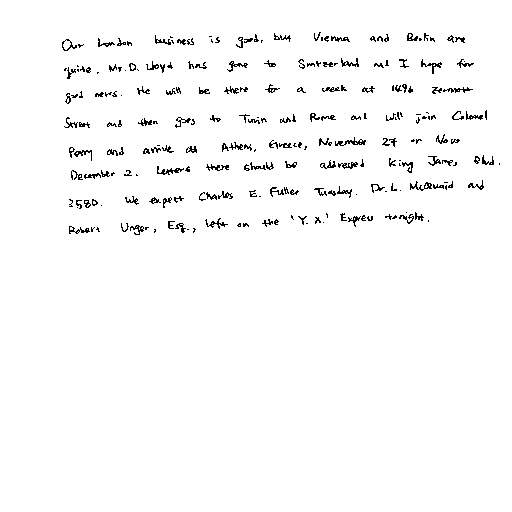 Our London business is good, but Vienna and Berlin are
quite. Mr. D. Lloyd has gone to Switzerland and I hope for
good news. He will be there for a week at 1496 Zermott
Street and then goes to Turin and Rome and will join Colonel
Parry and arrive at Athens, Greece, November 27 or
December 2. Letters there should be addressed King James Blvd.
3580. We expect Charles E. Fuller Tuesday. Dr. L. McQuaid and
Robert Unger, Esq., left on the 'Y. X.' Express tonight.